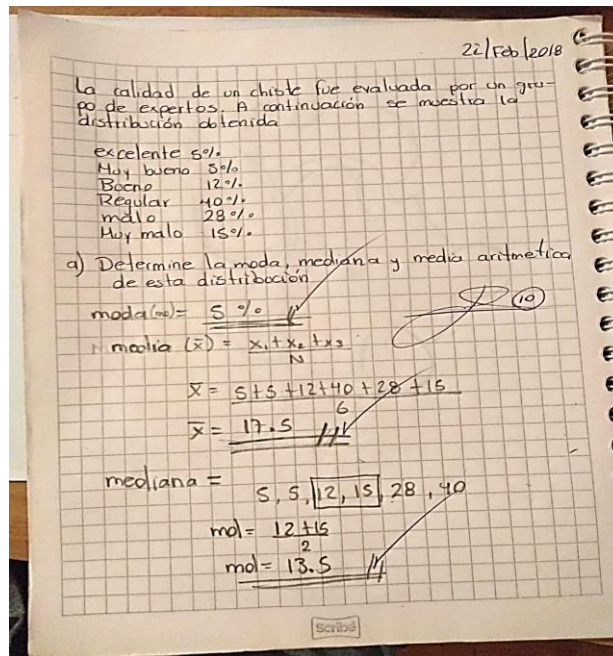 22/Feb/2018
La calidad de un chiste fue evaluada por un gru-
po de expertos. A continuación se muestra la
distribución obtenida
excelente 5%
Muy bueno 5%
Bueno 12%
Regular 40%
malo 28%
Muy malo 15%
a) Determine la moda, mediana y media aritmetica
de esta distribución
moda (mo) = 5 %
10
media (x̄) = x₁ + x₂ + x₃
N
x̄ = 5+5+12+40+28+15
6
x̄ = 17.5
mediana =
5, 5, 12, 15, 28, 40
md = 12+15
2
md = 13.5
Scribe